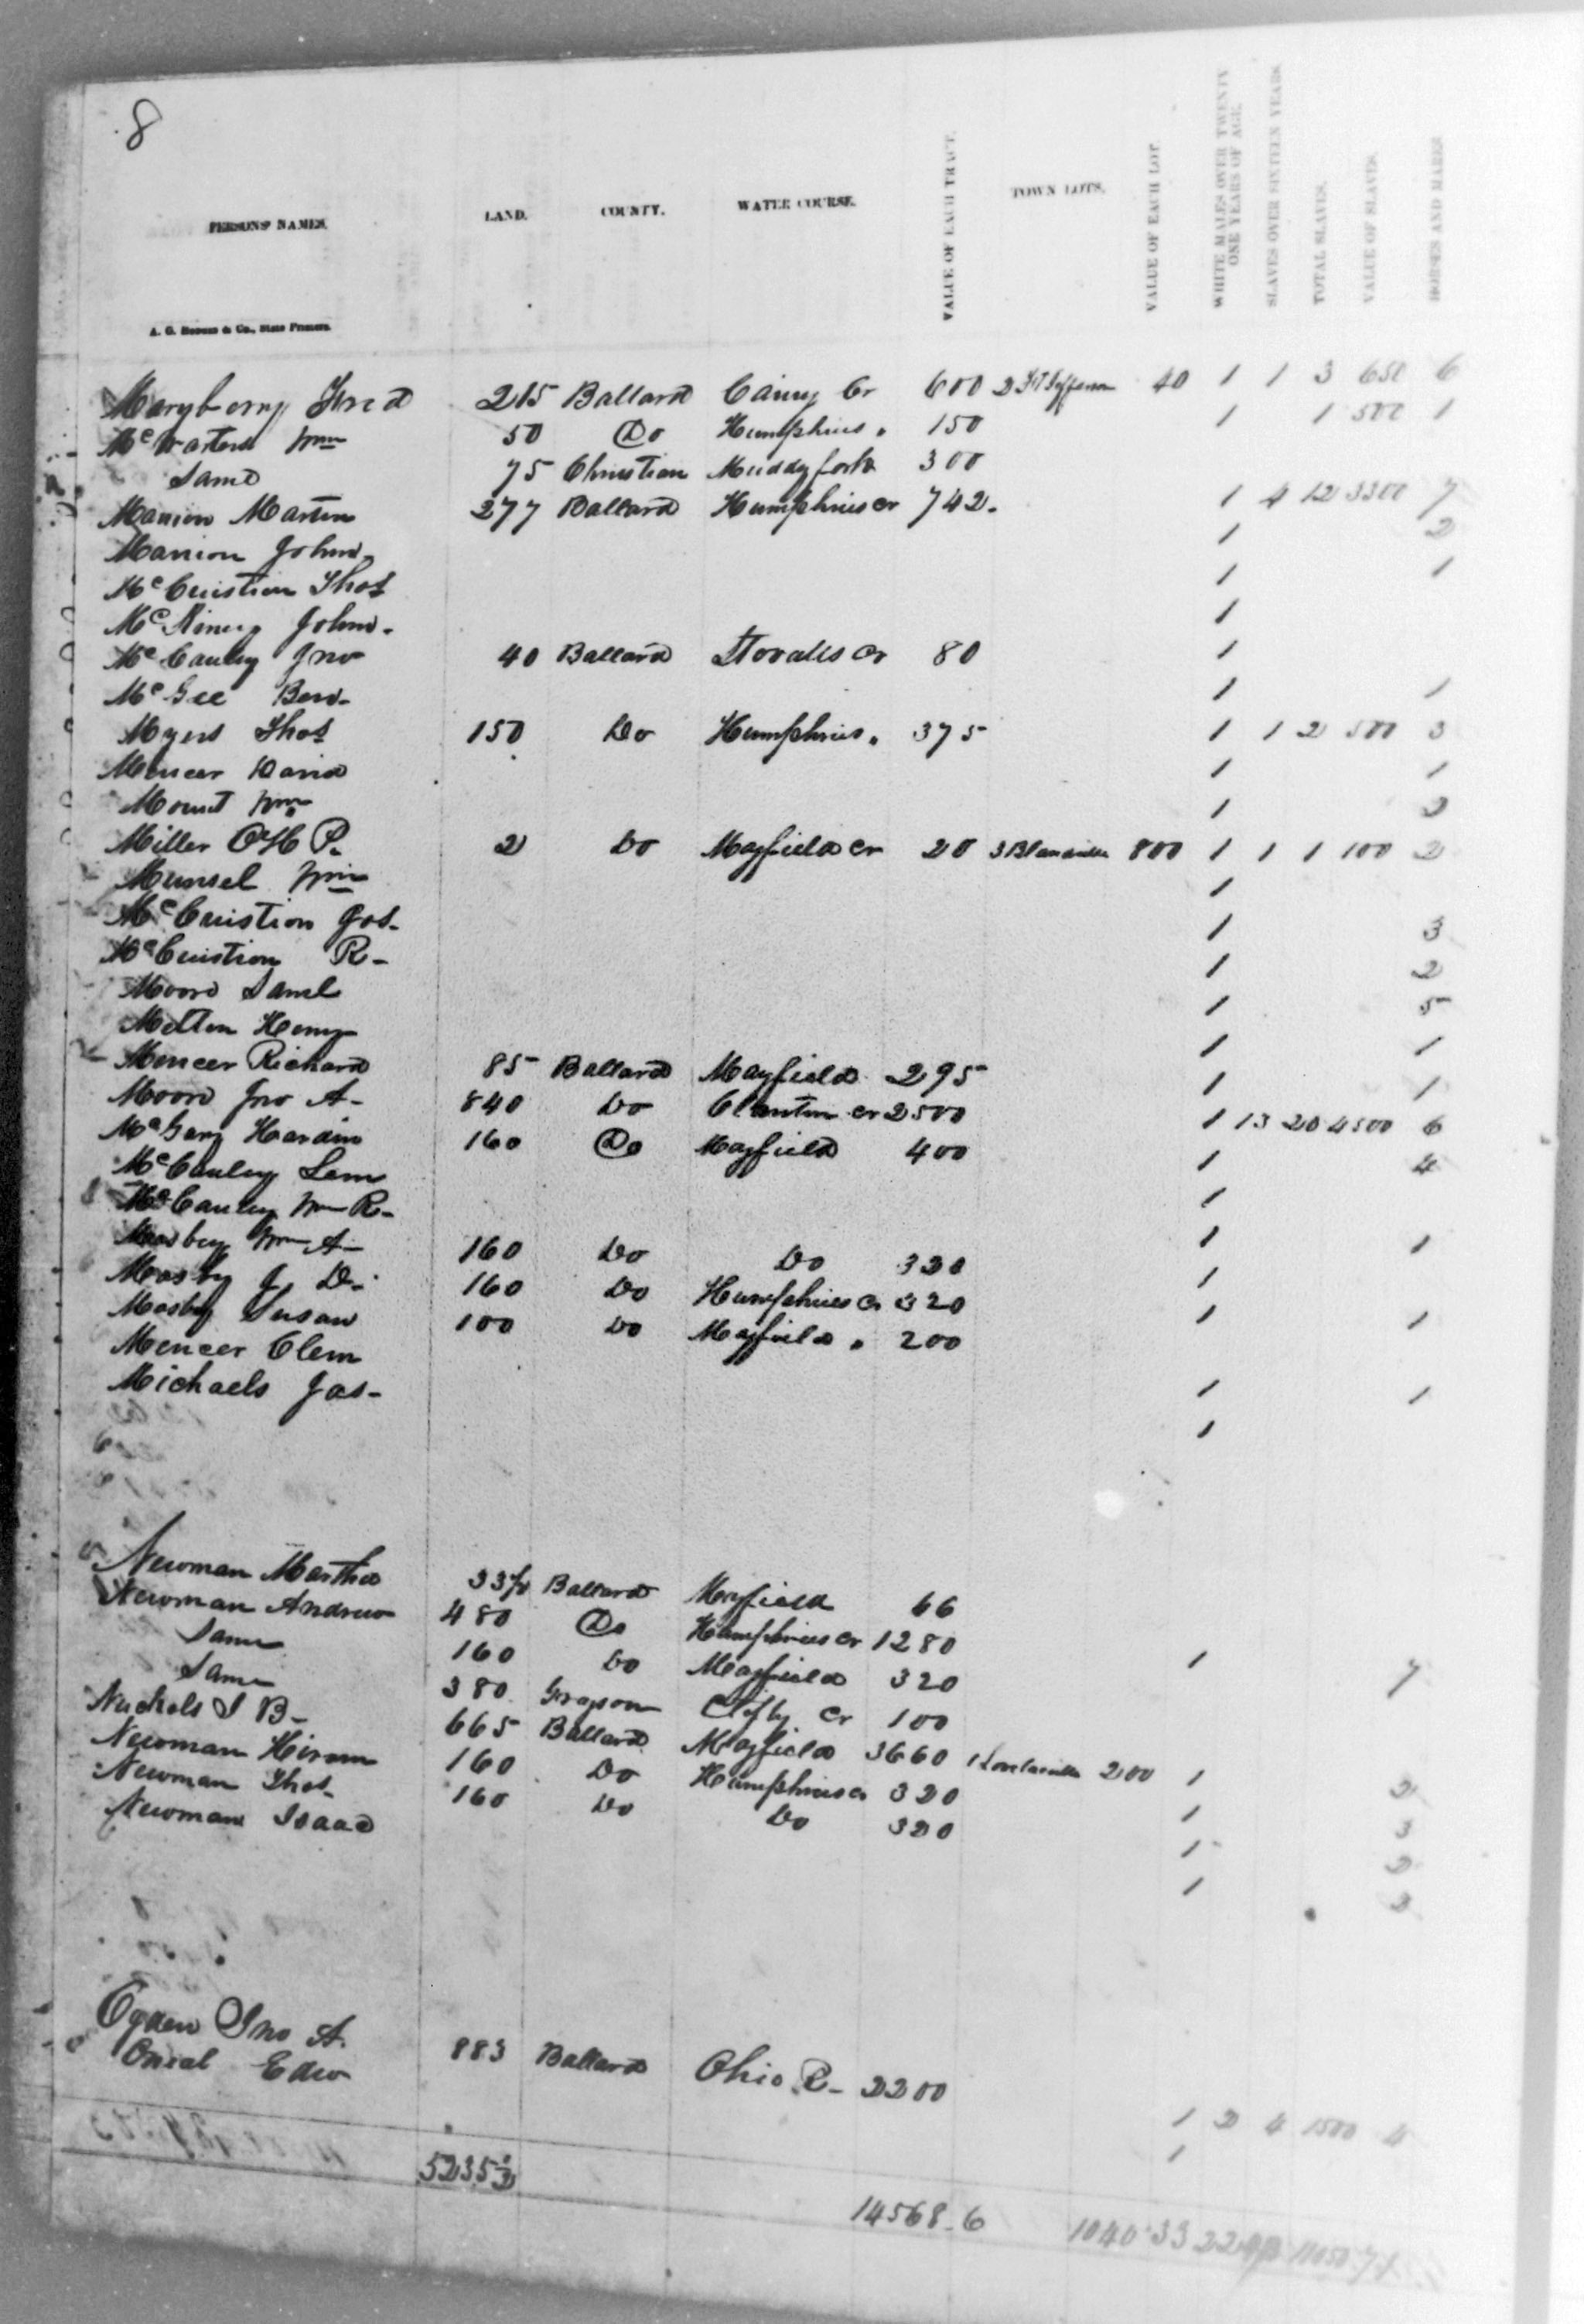 8
PERSONS' NAMES. LAND. COUNTY. WATER COURSE. VALUE OF EACH TRACT. TOWN LOTS. VALUE OF EACH LOT. WHITE MALES OVER TWENTY ONE YEARS OF AGE. SLAVES OVER SIXTEEN YEARS. TOTAL SLAVES. VALUE OF SLAVES. HORSES AND MARES
A. G. Hodges & Co., State Printers.
Mayberry Fred 215 Ballard Cainy Cr 600 2 Ft Jefferson 40 1 1 3 650 6
McWaters Wm 50 Do Humphries " 150 1 1 500 1
Same 75 Christian Muddy fork 300
Manion Martin 277 Ballard Humphries cr 742. 1 4 12 3300 7
Manion John 1 2
McCuistion Thos 1 1
John 1
McCauley Jno 40 Ballard Stovalls cr 80 1
McGee Ben 1 1
Myers Thos 150 Do Humphries " 375 1 1 2 500 3
Mencer David 1 1
Mount Wm 1 2
Miller O H P. 2 Do Mayfield cr 20 3 Blandville 800 1 1 1 100 2
Munsel Wm 1
McCuistion Jos. 1 3
McCuistion R- 1 2
Moore Saml 1 5
Melton Henry 1 1
Mencer Richard 85 Ballard Mayfield 295 1 1
Moore Jno A- 840 Do Clanton cr 2500 1 13 20 4500 6
McGary Hardin 160 Do Mayfield 400 1 4
McCauley Lem 1
McCauley Wm R- 1 1
Mosby Wm A- 160 Do Do 320 1
Mosby J. D. 160 Do Humphries cr 320 1 1
Mosby Susan 100 Do Mayfield " 200
Mencer Clem 1 1
Michaels Jas- 1
Newman Martha 33½ Ballard Mayfield 66
Newman Andrew 480 Do Humphries cr 1280 1 7
Same 160 Do Mayfield 320
Same 380 Grayson Clifty cr 100
Nuckols S B- 665 Ballard Mayfield 3660 1 Lovelaceville 200 1 2
Newman Hiram 160 Do Humphries cr 320 1 3
Newman Thos. 160 Do Do 320 1 2
Newman Isaac 1 3
Ogden Jno A. 883 Ballard Ohio R- 2200 1 2 4 1500 4
Oneal Edw 1
14568.6 1040 33 22